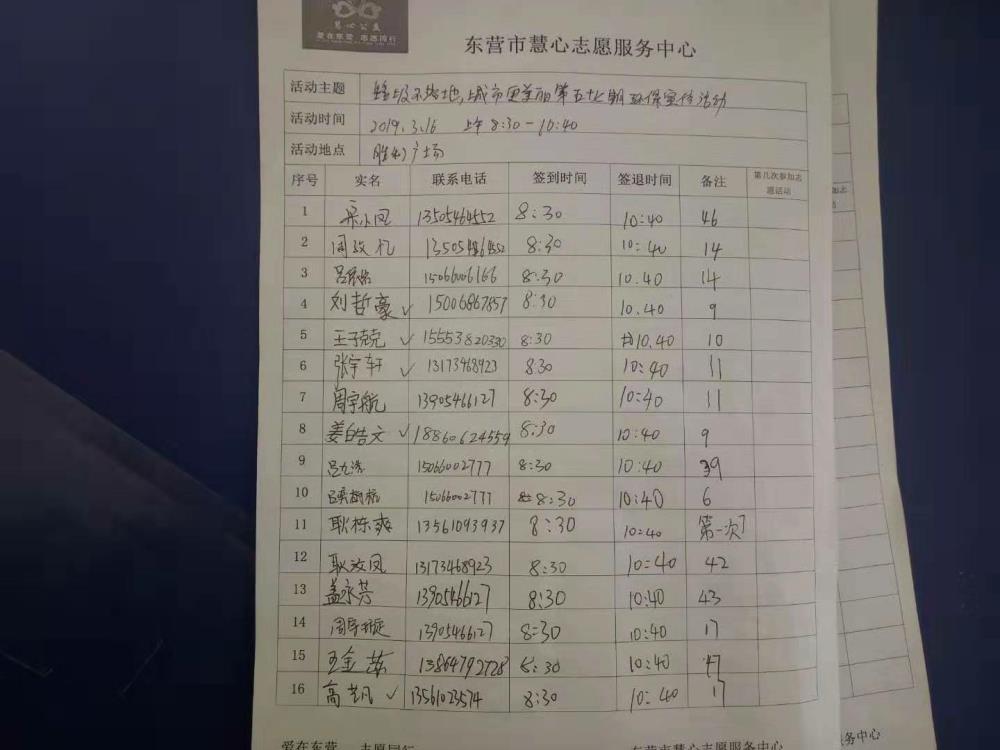 慧心公益
爱在东营 志愿同行
东营市慧心志愿服务中心
活动主题 垃圾不落地,城市更美丽第五十七期环保宣传活动
活动时间 2019.3.16 上午8:30-10:40
活动地点 胜利广场
序号 实名 联系电话 签到时间 签退时间 备注 第几次参加志愿活动
1 13505464552 8:30 10:40 46
2 周政机 13505464552 8:30 10:40 14
3 15066006166 8:30 10.40 14
4 刘哲豪 ✓ 15006867857 8:30 10.40 9
5 王子尧 ✓ 15553820330 8:30 10.40 10
6 张宇轩 ✓ 13173468923 8:30 10:40 11
7 周宇航 13905466127 8:30 10:40 11
8 姜皓文 ✓ 18860624559 8:30 10:40 9
9 15066002777 8:30 10:40 39
10 15066002777 8:30 10:40 6
11 耿栋爽 13561093937 8:30 10:40 第一次
12 耿汝凤 13173468923 8:30 10:40 42
13 盖永芳 13905466127 8:30 10:40 43
14 13905466127 8:30 10:40 17
15 王金 13864792728 8:30 10:40 47
16 高艺凡 ✓ 13561023574 8:30 10:40 17
爱在东营 志愿同行 东营市慧心志愿服务中心
服务中心